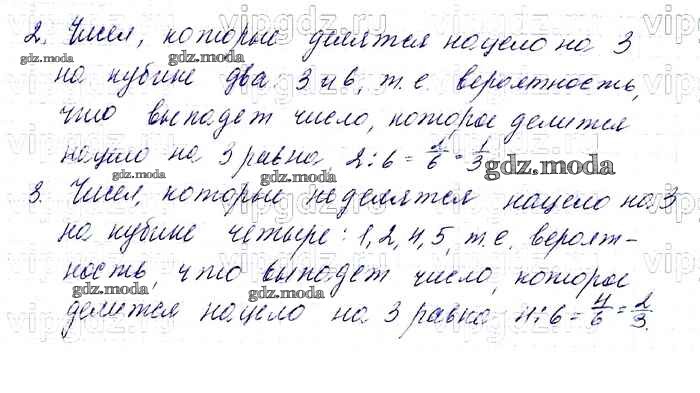 2. Чисел, которые делятся нацело на 3
на кубике два: 3 и 6, т.е. вероятность,
что выпадет число, которое делится
нацело на 3 равна 2:6 = 2/6 = 1/3
3. Чисел, которые не делятся нацело на 3
на кубике четыре: 1, 2, 4, 5, т.е. вероят-
ность, что выпадет число, которое
делится нацело на 3 равна 4:6 = 4/6 = 2/3.
gdz.moda
gdz.moda
gdz.moda
gdz.moda
gdz.moda
gdz.moda
gdz.moda
gdz.moda